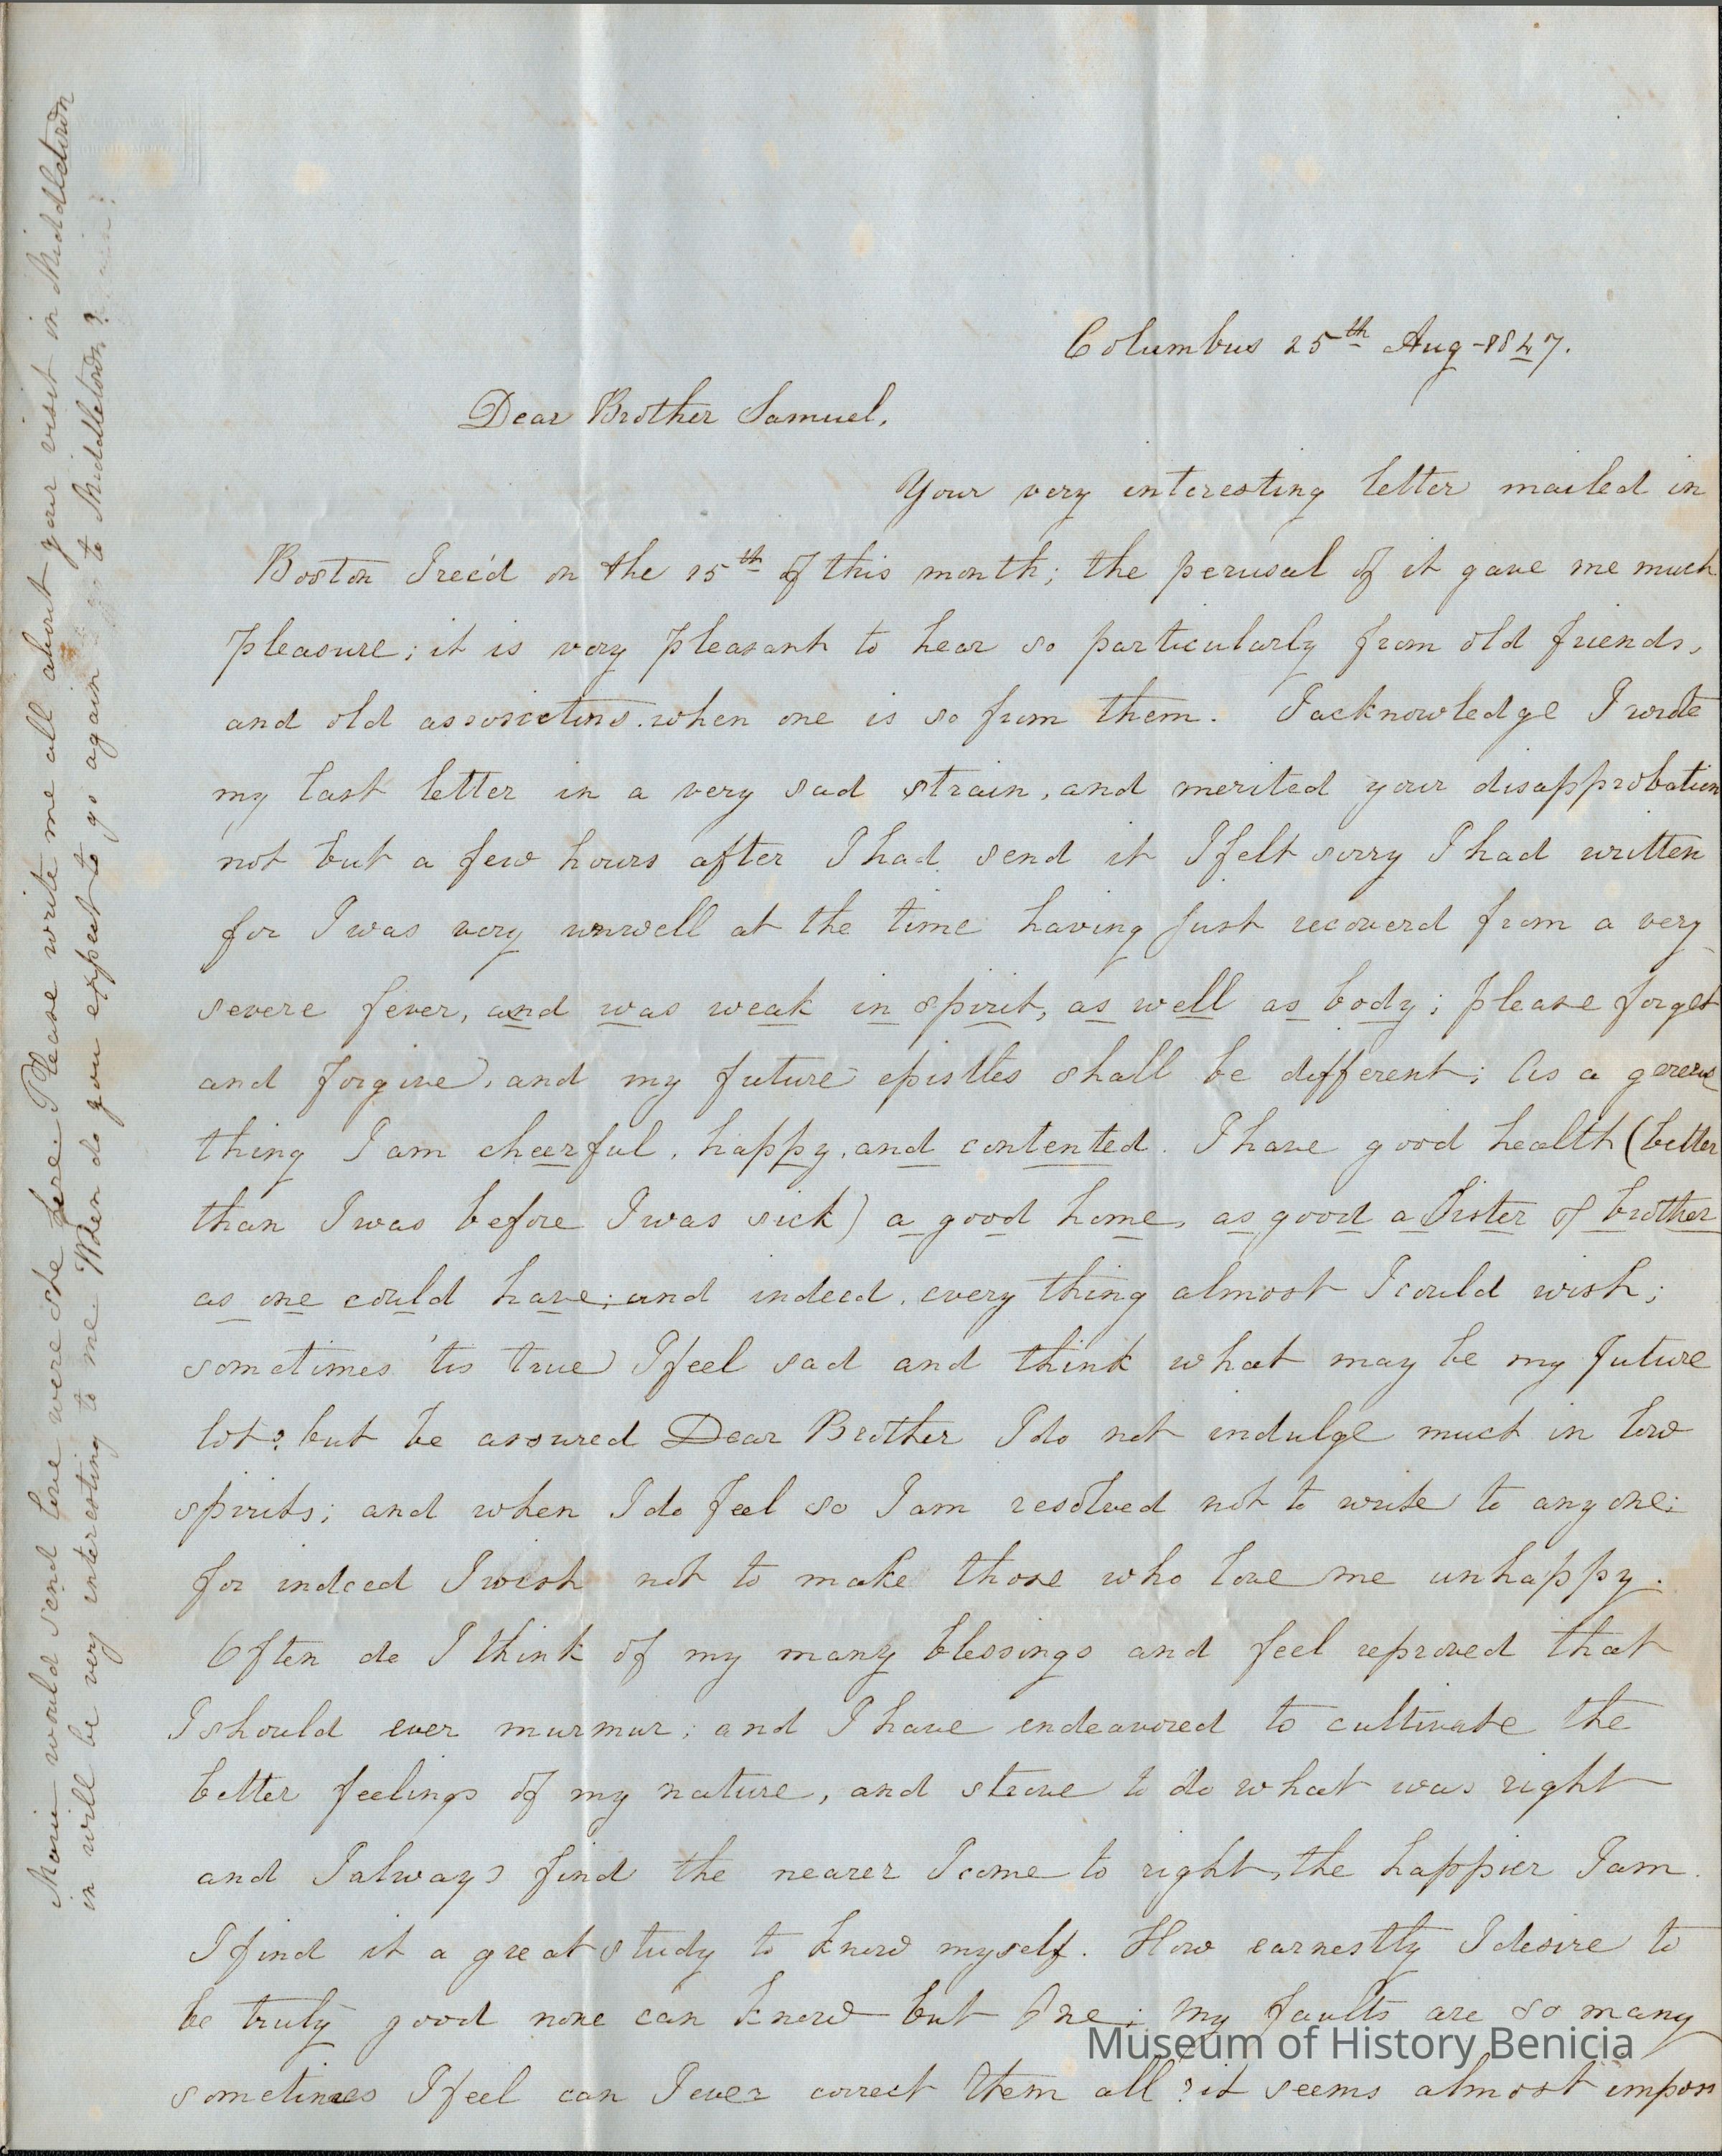 Columbus 25th Aug - 1847.
Dear Brother Samuel,
Your very interesting letter mailed in
Boston I rec'd on the 15th of this month; the perusal of it gave me much
pleasure; it is very pleasant to hear so particularly from old friends,
and old associctins. when one is so from them. I acknowledge I wrote
my last letter in a very sad strain, and merited your disapprobation
not but a few hours after I had send it I felt sorry I had written
for I was very unwell at the time having just recoverd from a very
severe fever, and was weak in spirit, as well as body; please forget
and forgive, and my future epistles shall be different; As a
thing I am cheerful, happy, and contented. I have good health (better
than I was before I was sick) a good home, as good a Sister & brother
as one could have; and indeed, every thing almost I could wish;
sometimes 'tis true I feel sad and think what may be my future
lot? but be assured Dear Brother I do not indulge much in low
spirits; and when I do feel so I am resolved not to write to any one;
for indeed I wish not to make those who love me unhappy.
Often do I think of my many blessings and feel reproved that
I should ever murmur; and I have endeavored to cultivate the
better feelings of my nature, and strove to do what was right
and I always find the nearer I come to right, the happier I am.
I find it a great study to know myself. How earnestly I desire to
be truly good none can know but One; my faults are so many
sometimes I feel can I ever correct them all? it seems almost impos
Marie would send love were she here. Please write me all about your visit in Middletown
in will be very interesting to me When do you expect to go again to Middletown?
Museum of History Benicia